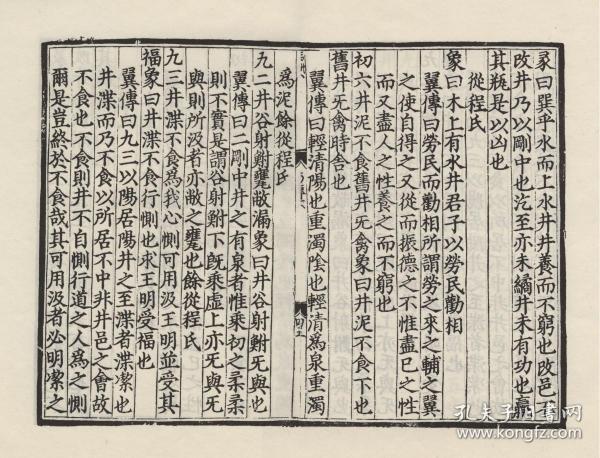 彖曰巽乎水而上水井井養而不窮也改邑不
改井乃以剛中也汔至亦未繘井未有功也羸
其瓶是以凶也
從程氏
象曰木上有水井君子以勞民勸相
翼傳曰勞民而勸相所謂勞之來之輔之翼
之使自得之又從而振德之不惟盡已之性
而又盡人之性養之而不窮也
初六井泥不食舊井无禽象曰井泥不食下也
舊井无禽時舍也
翼傳曰輕清陽也重濁陰也輕清爲泉重濁
爲泥餘從程氏
九二井谷射鮒甕敝漏象曰井谷射鮒无與也
翼傳曰二剛中井之有泉者惟乗初之柔柔
則不實是謂谷射鮒下旣乘虛上亦无與无
與則所汲者亦敝之甕也餘從程氏
九三井渫不食爲我心惻可用汲王明並受其
福象曰井渫不食行惻也求王明受福也
翼傳曰九三以陽居陽井之至渫者渫潔也
井渫而乃不食以所居不中非井邑之會故
不食也不食則井不自惻行道之人爲之惻
爾是豈終於不食哉其可用汲者必明潔之
孔夫子旧书网
www.kongfz.com